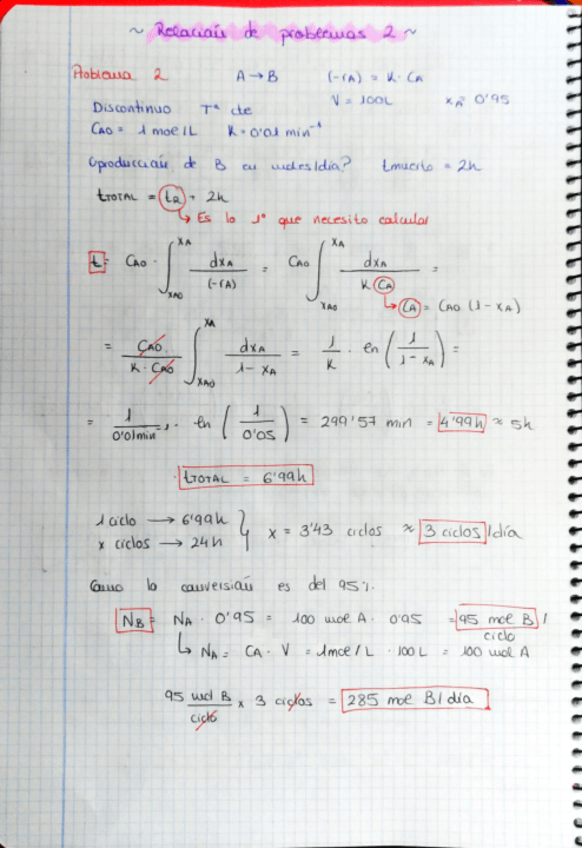 ~ Relación de problemas 2 ~
Problema 2 A → B (-rA) = K · CA
Discontinuo Tª cte V = 100L xA = 0'95
CAO = 1 mol/L K = 0'01 min⁻¹
¿producción de B en moles/día? tmuerto = 2h
tTOTAL = tR + 2h
↳ Es lo 1º que necesito calcular
t = CAO · ∫XAO^XA dXA / (-rA) = CAO ∫XAO^XA dXA / K CA =
↳ CA = CAO (1 - XA)
= CAO / K · CAO ∫XAO^XA dXA / 1 - XA = 1/K · ln (1 / 1 - XA) =
= 1 / 0'01min · ln (1 / 0'05) = 299'57 min = 4'99h ≈ 5h
tTOTAL = 6'99h
1 ciclo → 6'99h
x ciclos → 24h } x = 3'43 ciclos ≈ 3 ciclos/día
Como la conversión es del 95%.
NB = NA · 0'95 = 100 mol A · 0'95 = 95 mol B / ciclo
↳ NA = CA · V = 1mol/L · 100L = 100 mol A
95 mol B / ciclo × 3 ciclos = 285 mol B/día